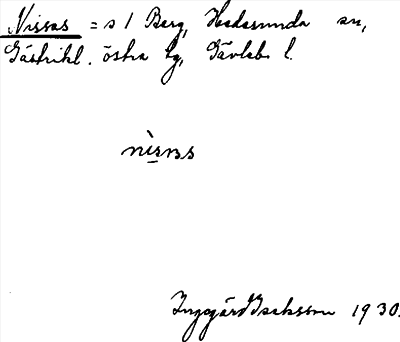 Nissas = s 1 Berg, Hedesunda sn,
Gästrikl. östra tg, Gävleb. l.
Ingegärd Isaksson 1930.